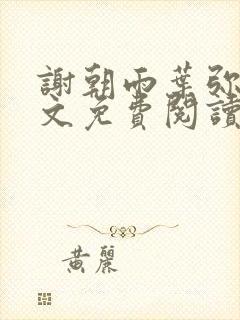 謝朝雨葉弥
文免費閱讀
黃麗